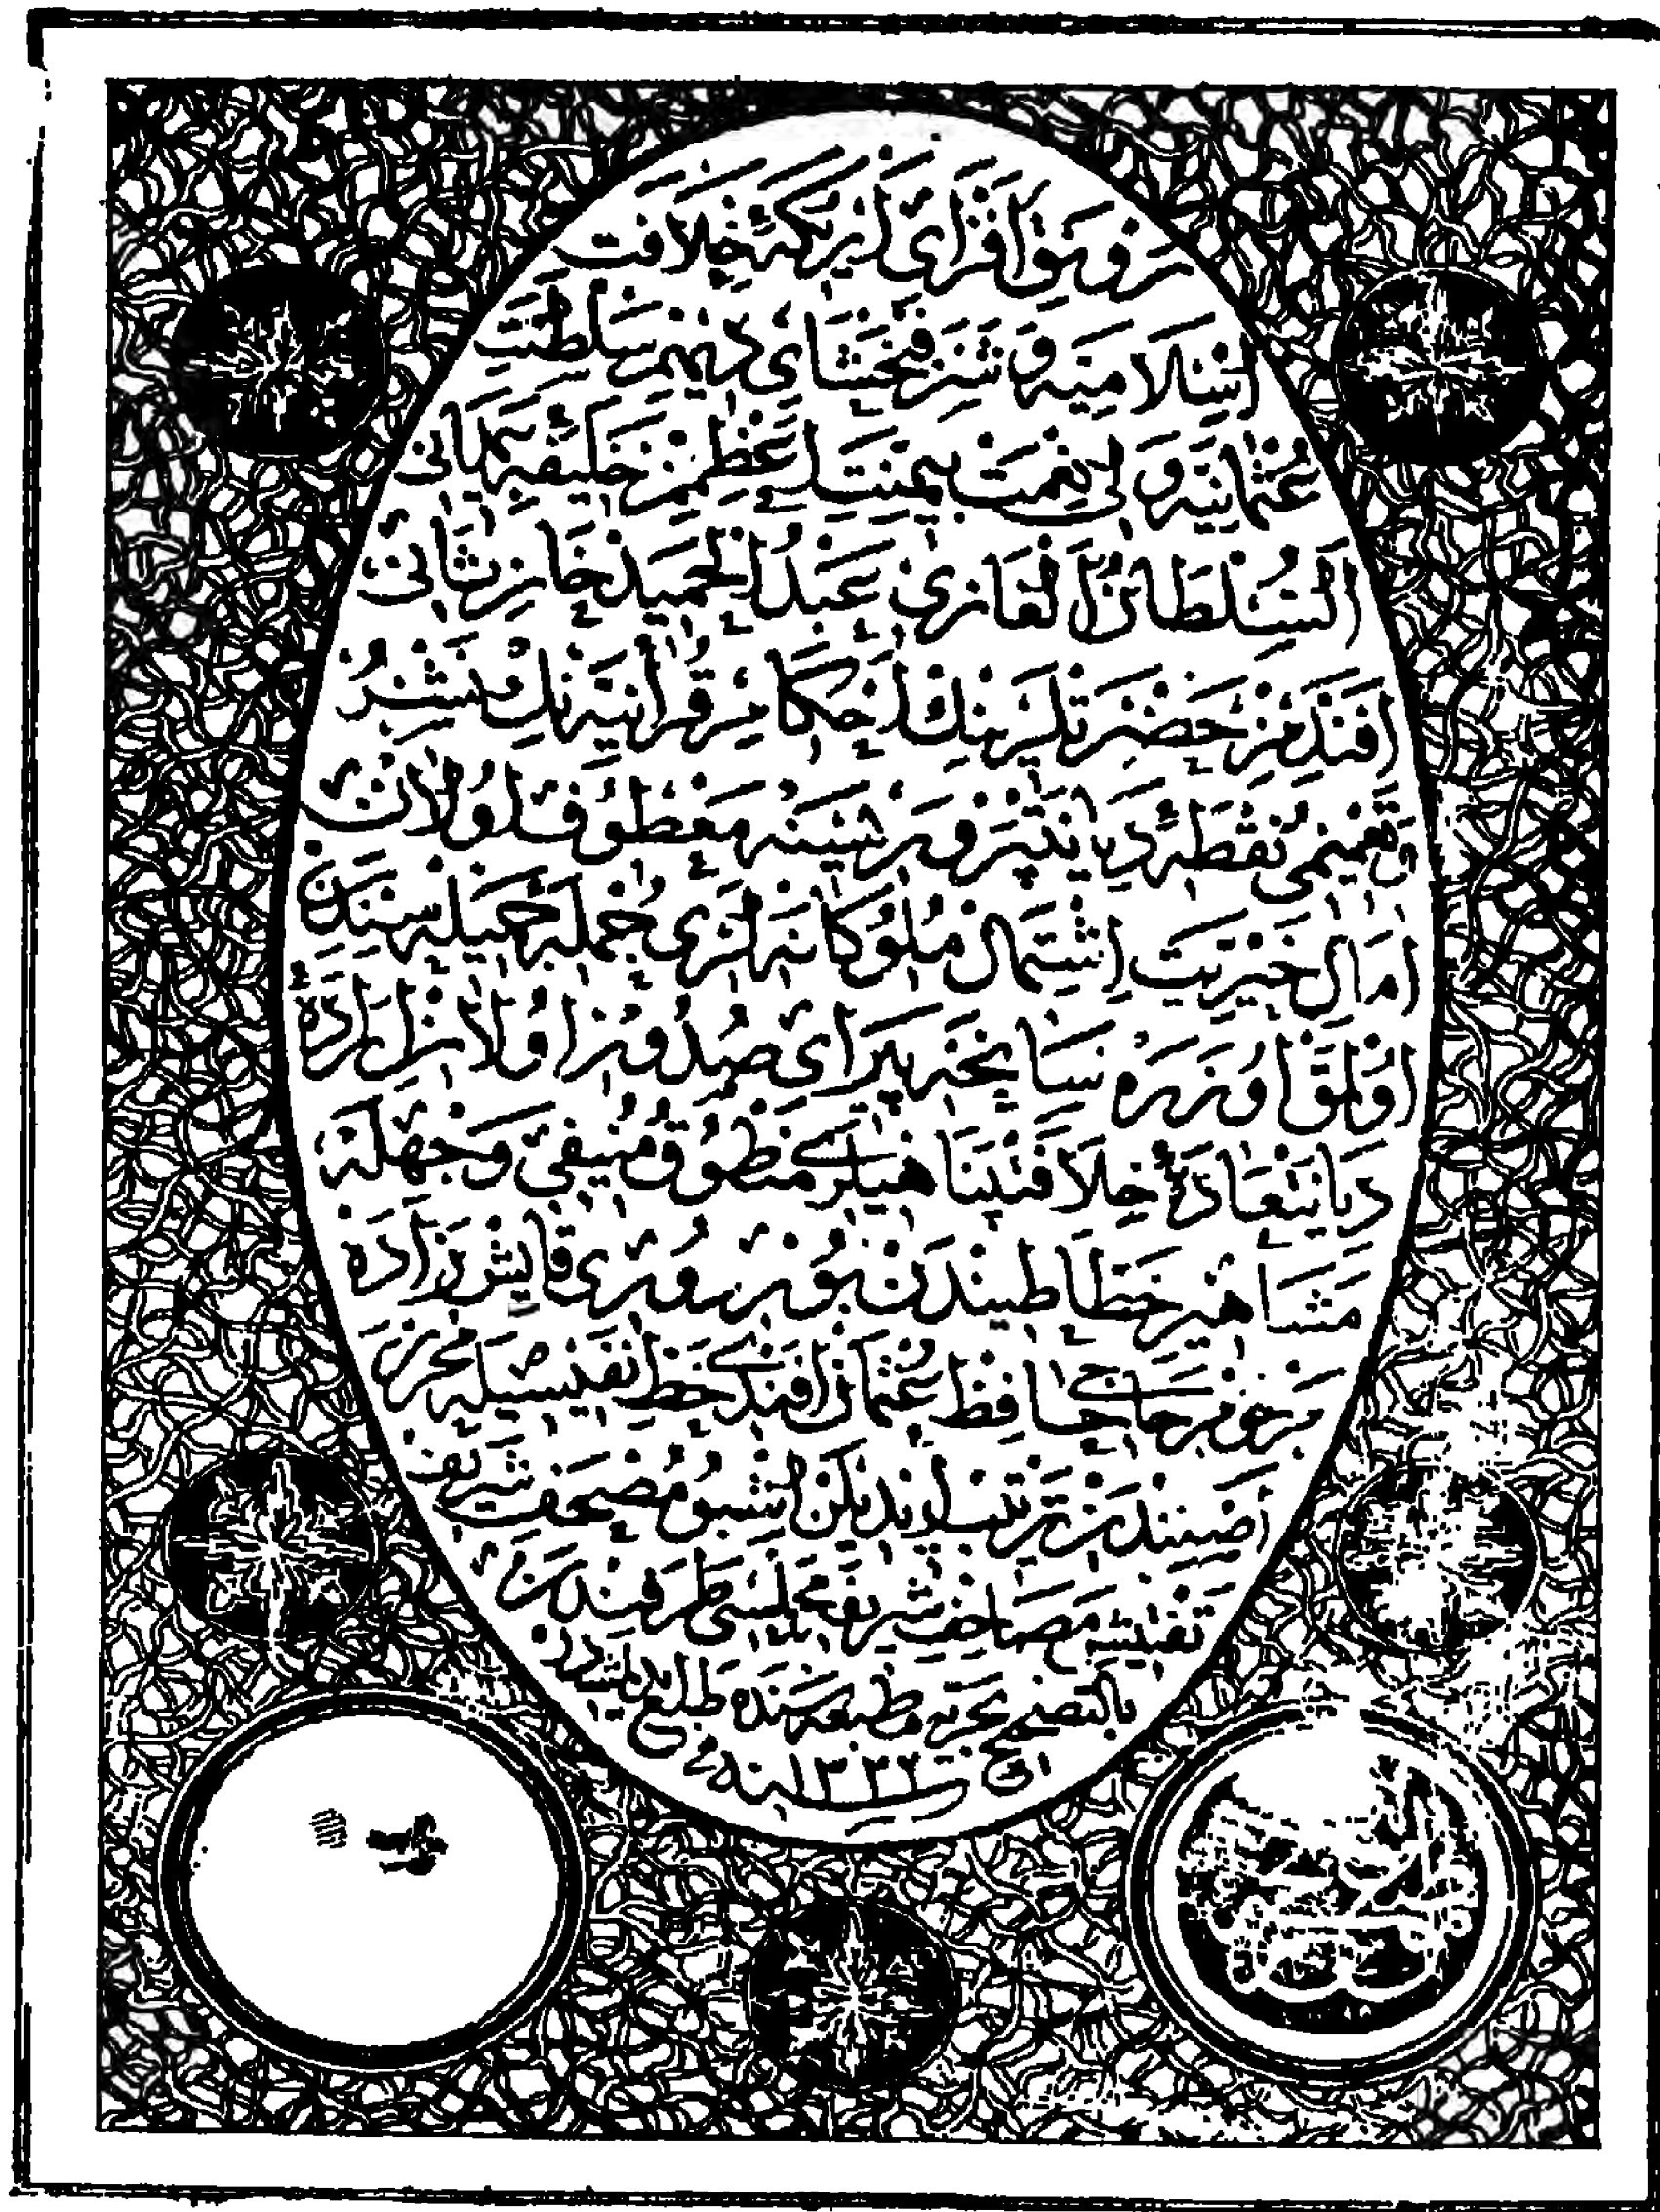 رونق افزای اریکهٔ خلافت
اسلامیه و شرفبخشای دیهیم سلطنت
عثمانیه ولی نعمت بیمنت اعظم خلیفهٔ
السلطان الغازی عبد الحمید خان ثانی
افندمز حضرتلرینك احكام قرآنیه نك نشر
و تعمیمی نقطهٔ دیانتپرورسینه معطوف اولان
امال خیریت اشتمال ملوکانه لری جملهٔ جمیله سندن
اولمق اوزره سانحه پیرای صدور اولان اراده
دیانتعادهٔ خلافتپناهیلری منطوق منیفی وجهله
مشاهیر خطاطیندن بوردوری قایش زاده
مرحوم حاجی حافظ عثمان افندی خط نفیسیله محرر
اصلندن ترتیب ایدیلن اشبو مصحف شریف
تفتیش مصاحف شریفه مجلسی طرفندن
بالتصحیح بحریه مطبعه سنده طبع ایدلمشدر
فی سنه ١٣٢٢